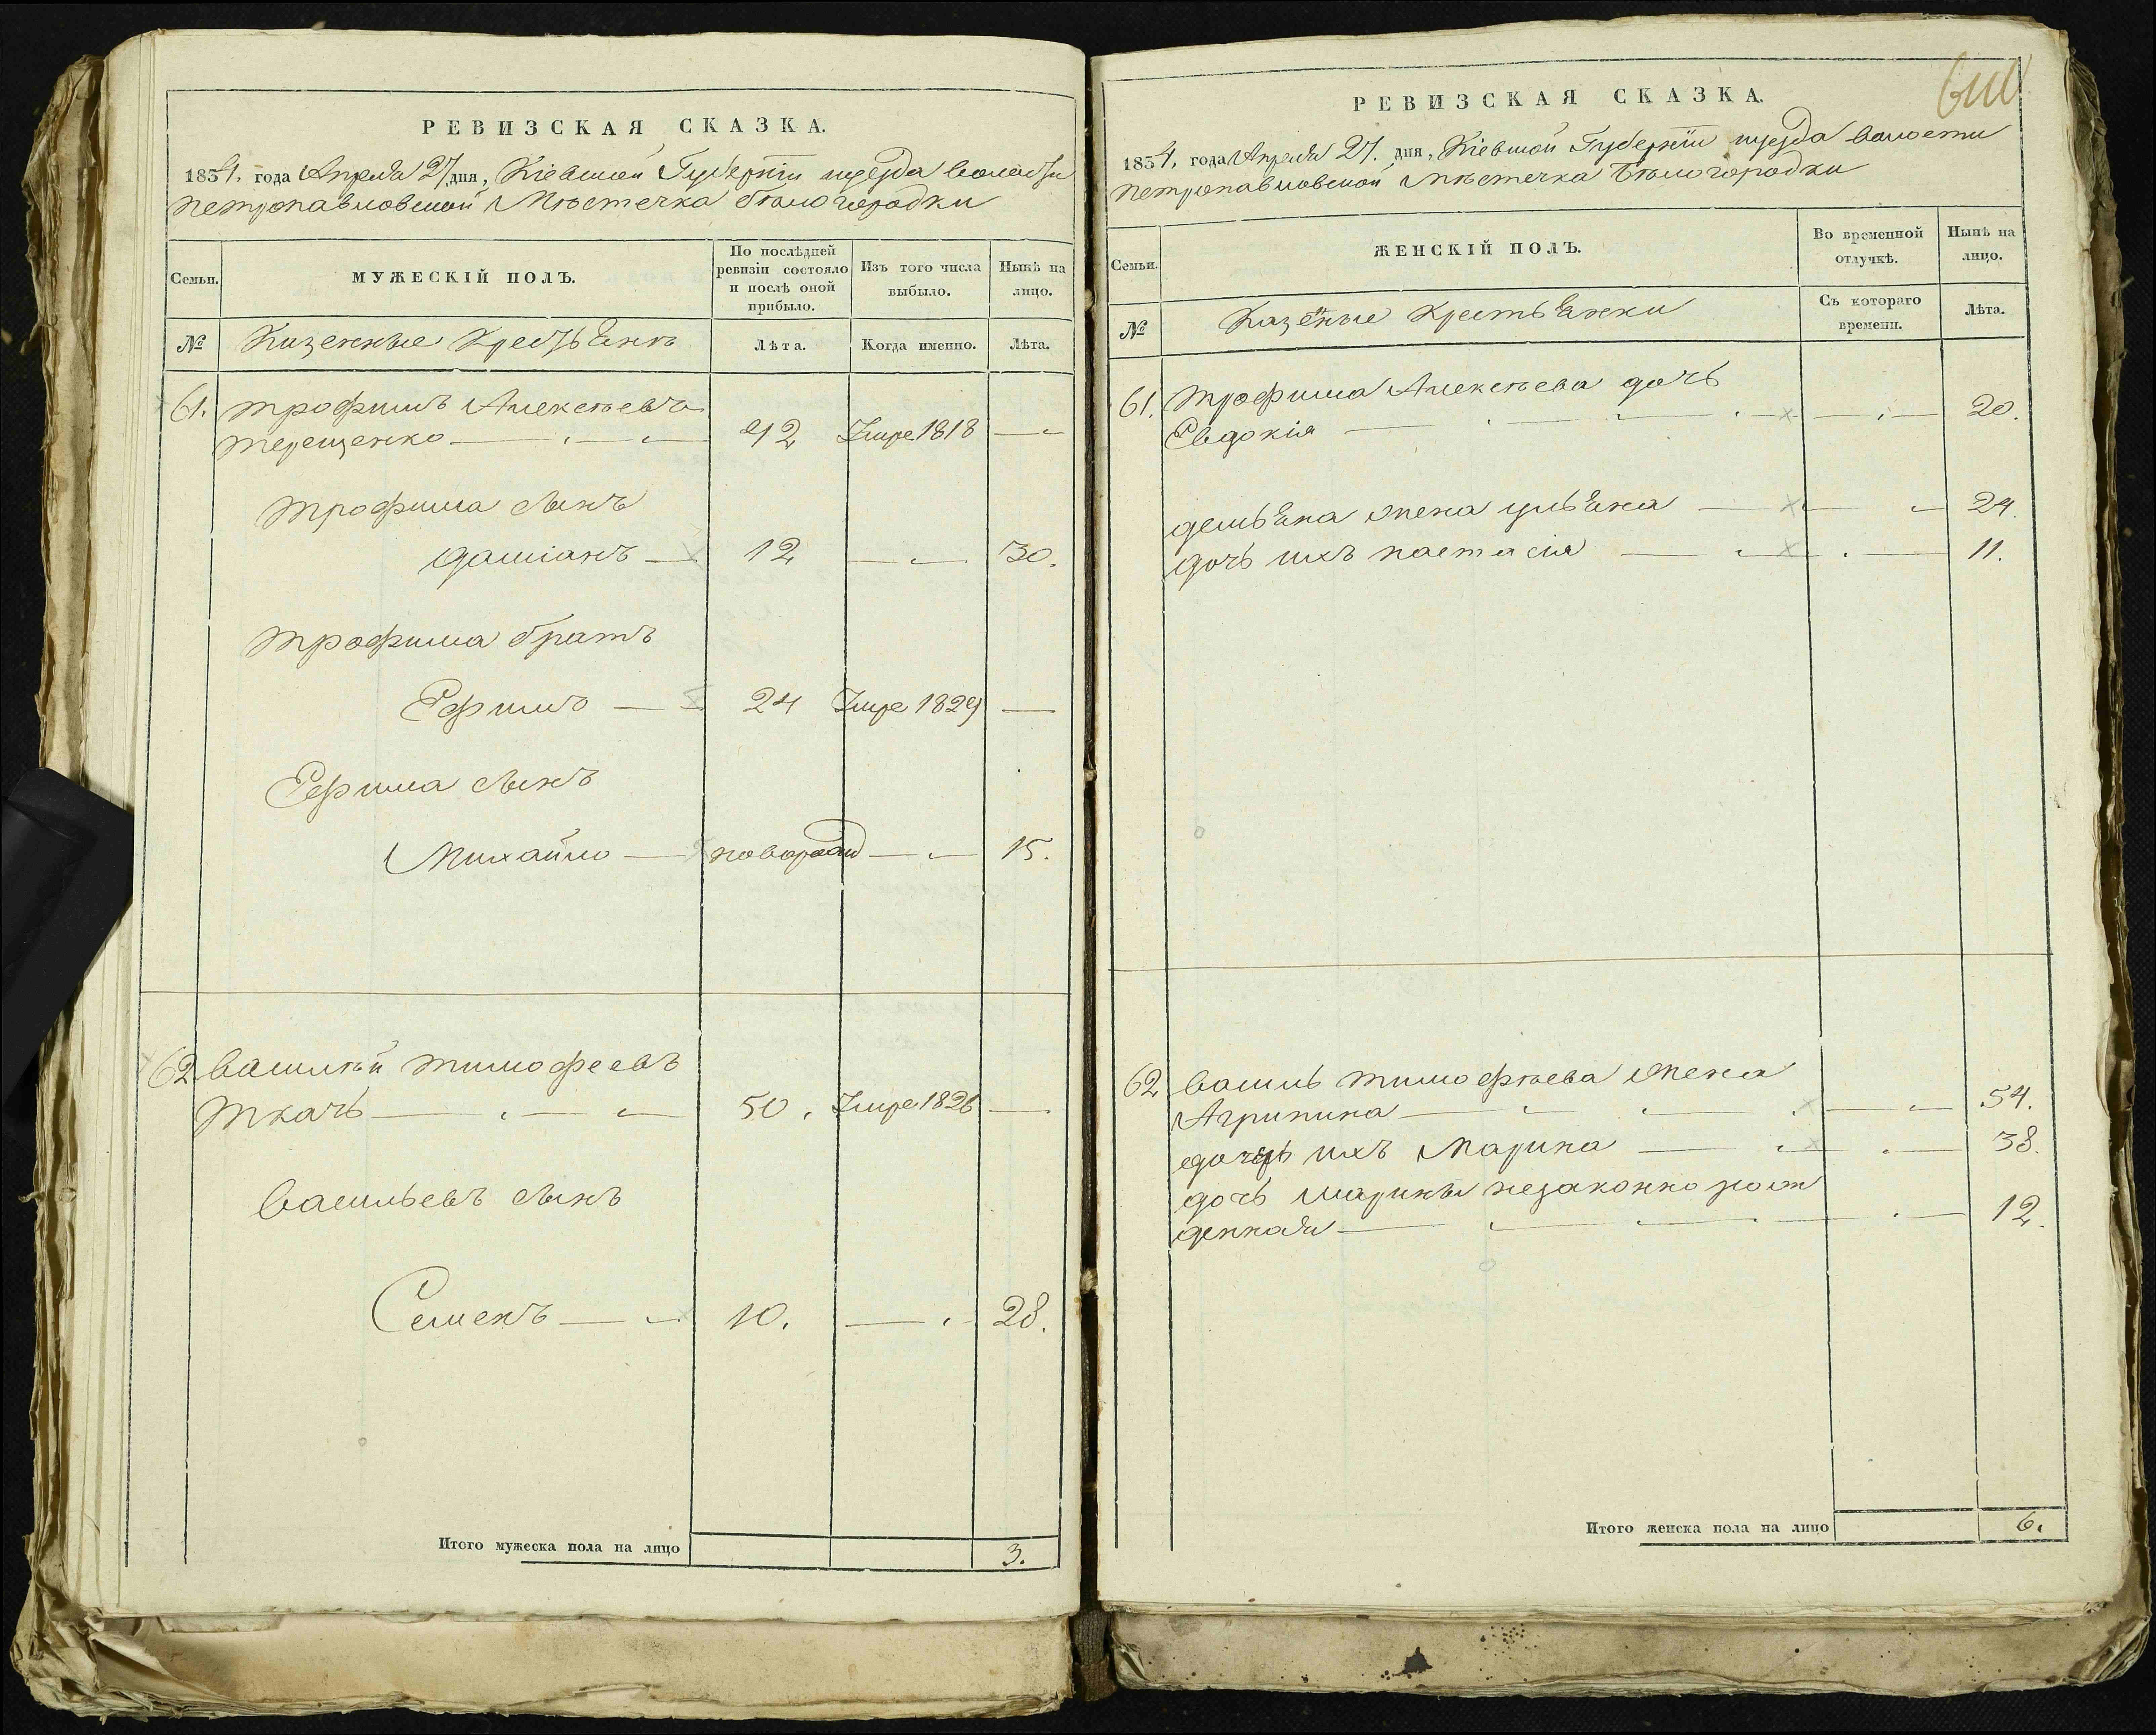 РЕВИЗСКАЯ СКАЗКА.
1834. года Апреля 27 дня, Кіевской Губерніи уезда волости
петропавловской Мѣстечка бѣлогородки
Семьи.
МУЖЕСКІЙ ПОЛЪ.
По послѣдней ревизіи состояло и послѣ оной прибыло.
Изъ того числа выбыло.
Нынѣ на лицо.
№
Казенные Крестьянѣ
Лѣта.
Когда именно.
Лѣта.
61. трофимъ Алексѣевъ
терещенко 42 Умре 1818
трофима сынъ
даміанъ 12 30.
трофима братъ
Ефимъ 24 Умре 1829
Ефима сынъ
Михайло новорожд 15.
62 василѣй тимофеевъ
ткачь 50. Умре 1826
васильевъ сынъ
Семенъ 10. 28.
Итого мужеска пола на лицо 3.
РЕВИЗСКАЯ СКАЗКА.
1834. года Апреля 27. дня, Кіевской Губерніи уезда волости
петропавловской мѣстечка Бѣлогородки
Семьи.
ЖЕНСКІЙ ПОЛЪ.
Во временной отлучкѣ.
Нынѣ на лицо.
№
Казеные Крестьянки
Съ котораго времени.
Лѣта.
61. трофима Алексѣева дочь
Евдокія 20.
демьяна жена ульяна 24.
дочь ихъ настасія 11.
62 василь тимофѣева жена
Агрипина 54.
дочерь ихъ Марина 38.
дочь марины незаконно рож
денная 12.
Итого женска пола на лицо 6.